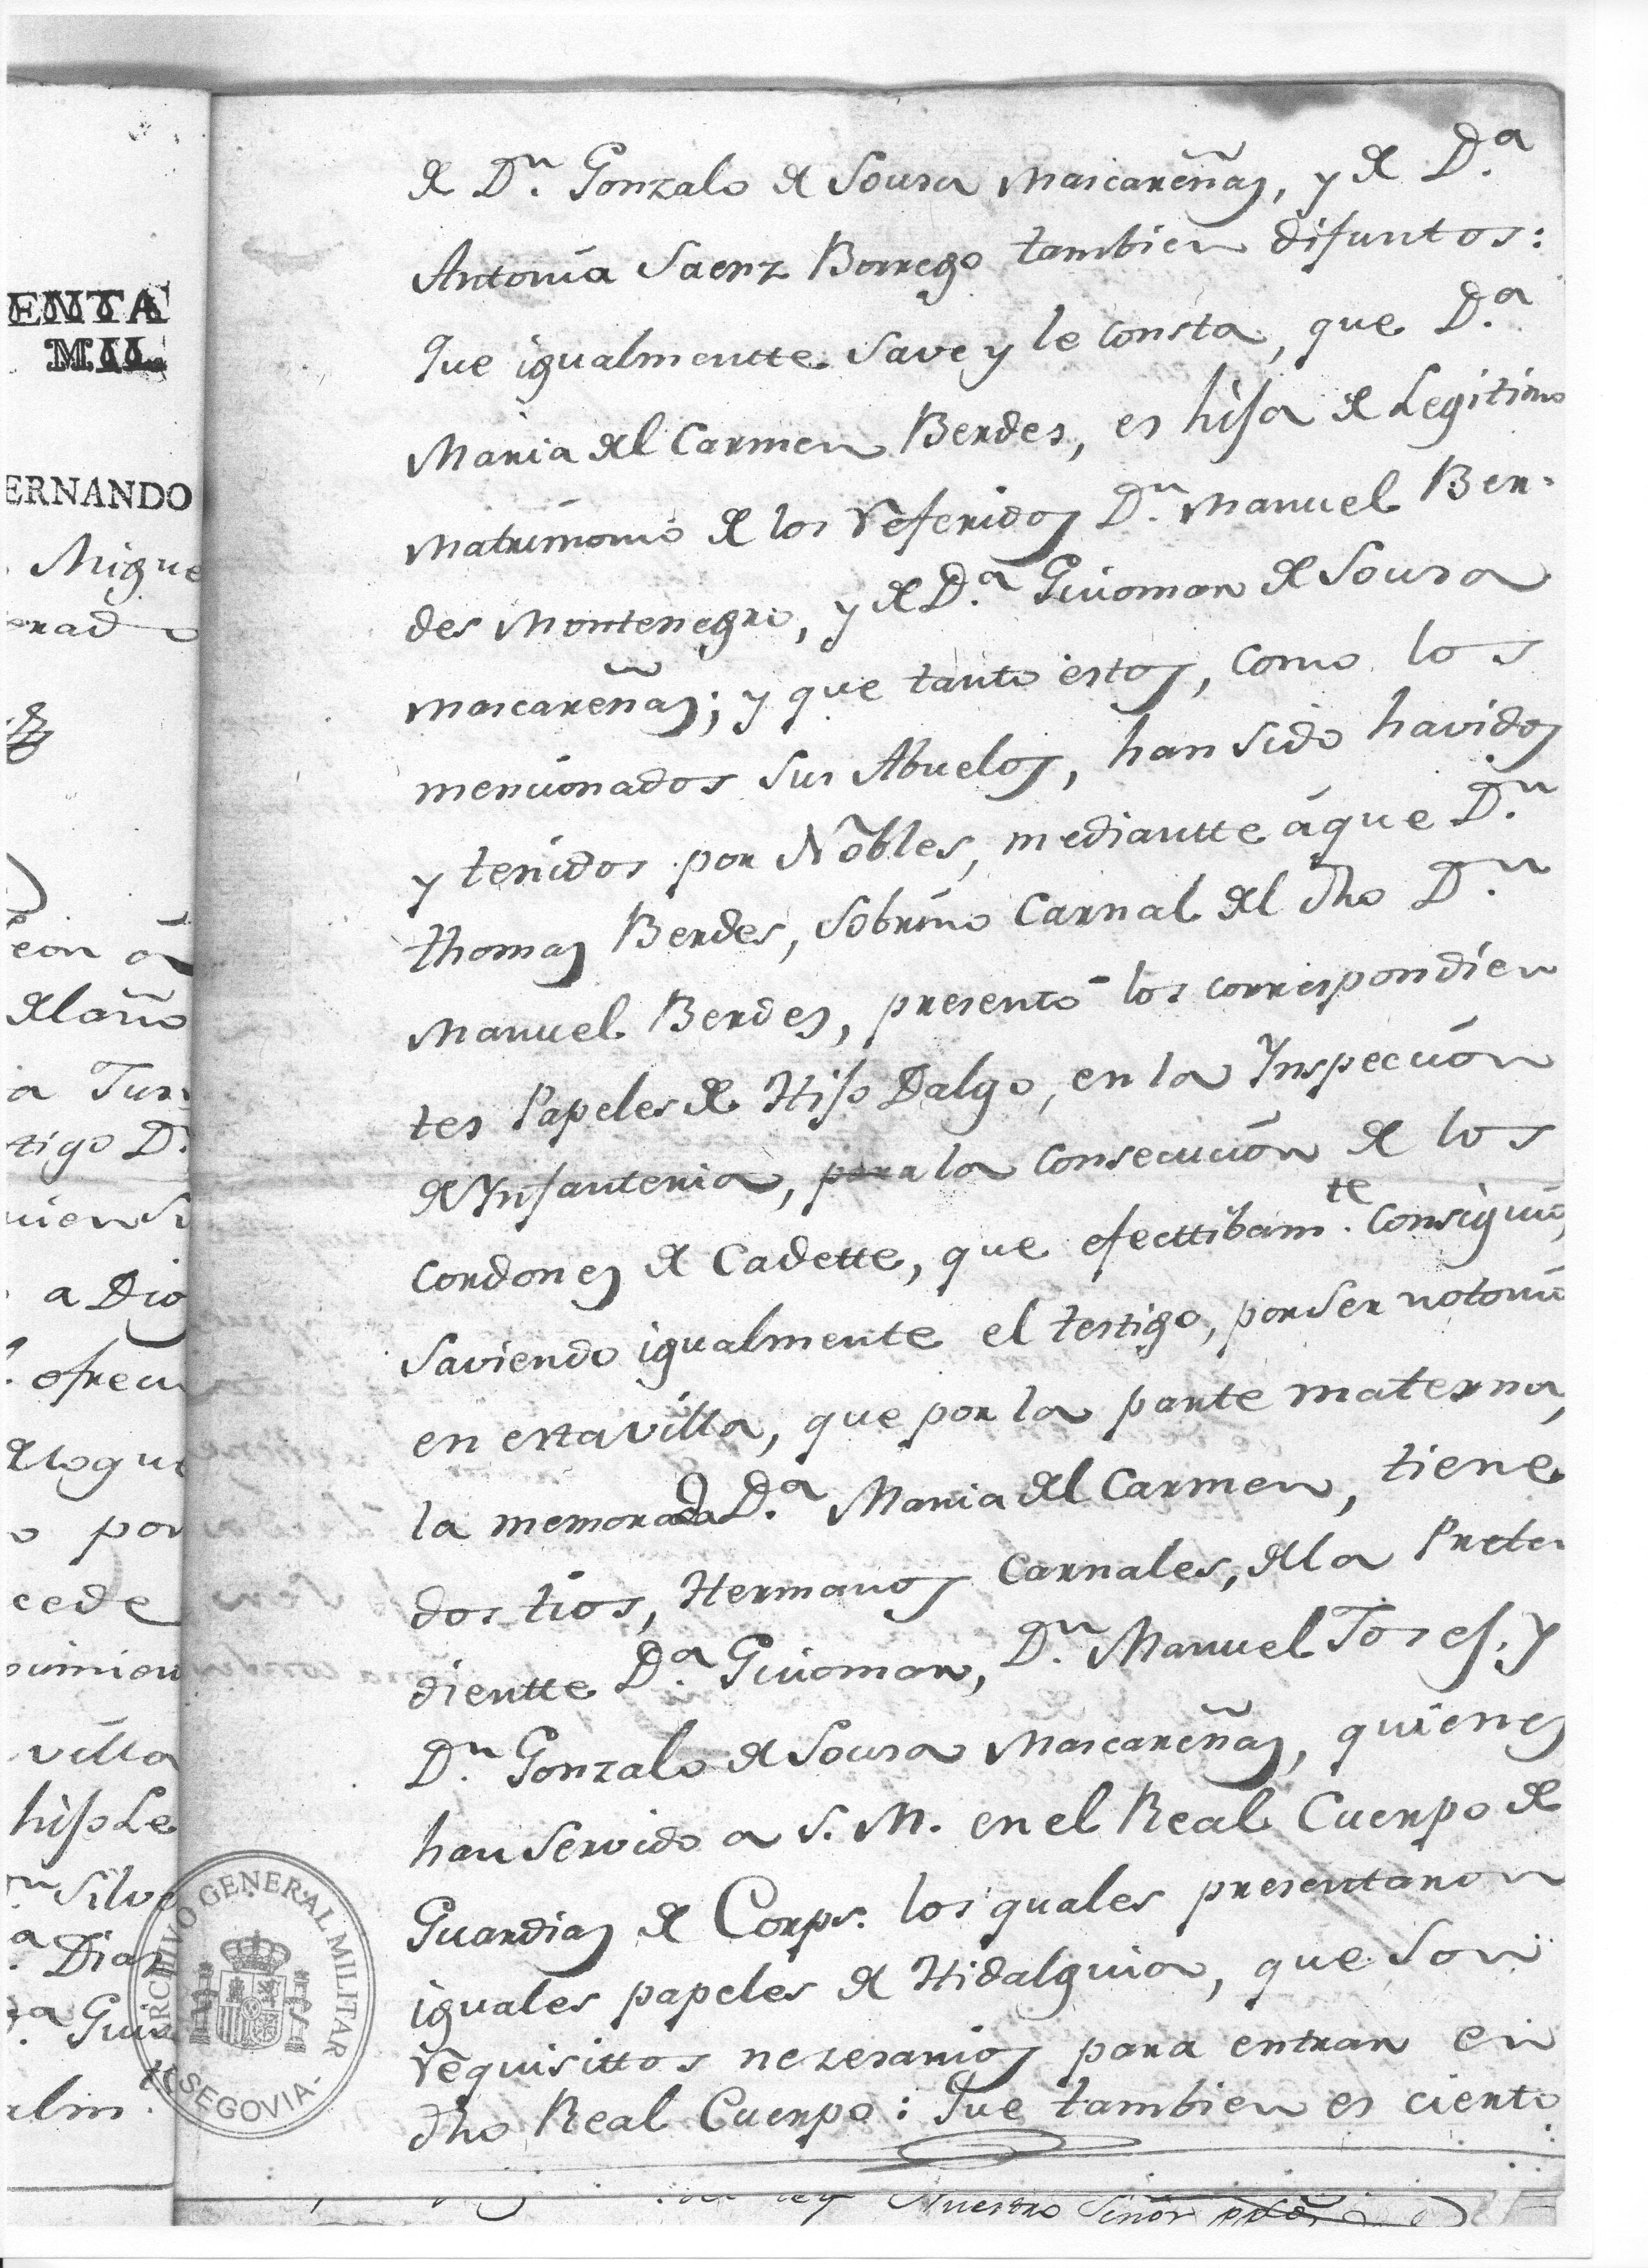 ENTA
MIL
ERNANDO
Migue
a Dio
ofreci
por
cede
villa
hijo Le
Silve
Diaz
de Dn. Gonzalo de Sousa Mascareñas, y de D.a
Antonia Saenz Borrego tambien difuntos:
Que igualmentte Save y le consta, que D.a
Maria del Carmen Berdes, es hija de Legitimo
Matrimonio de los referidos Dn. Manuel Ber-
des Montenegro, y de D.a Guiomar de Sousa
Mascareñas; y que tanto estos, como los
mencionados sus Abuelos, han sido havidos
y tenidos por Nobles, mediantte á que Dn.
thomas Berdes, Sobrino Carnal del dho Dn.
Manuel Berdes, presentó los correspondien
tes Papeles de Hijo Dalgo, en la Ynspeccion
de Ynfanteria, para la consecucion de los
Cordones de Cadette, que efecttibam.te consiguio,
Saviendo igualmente el testigo, por Ser notorio
en esta villa, que por la parte materna,
la memorada D.a Maria del Carmen, tiene
dos tios, Hermanos Carnales, de la Preten
dientte D.a Guiomar, Dn. Manuel Josef, y
Dn. Gonzalo de Sousa Mascareñas, quienes
han Servido a S. M. en el Real Cuerpo de
Guardias de Corps. los quales presentaron
iguales papeles de Hidalguia, que Son
requisittos nezesarios para entrar en
dho Real Cuerpo: Que tambien es cierto
Nuestro Señor
ARCHIVO GENERAL MILITAR
-SEGOVIA-